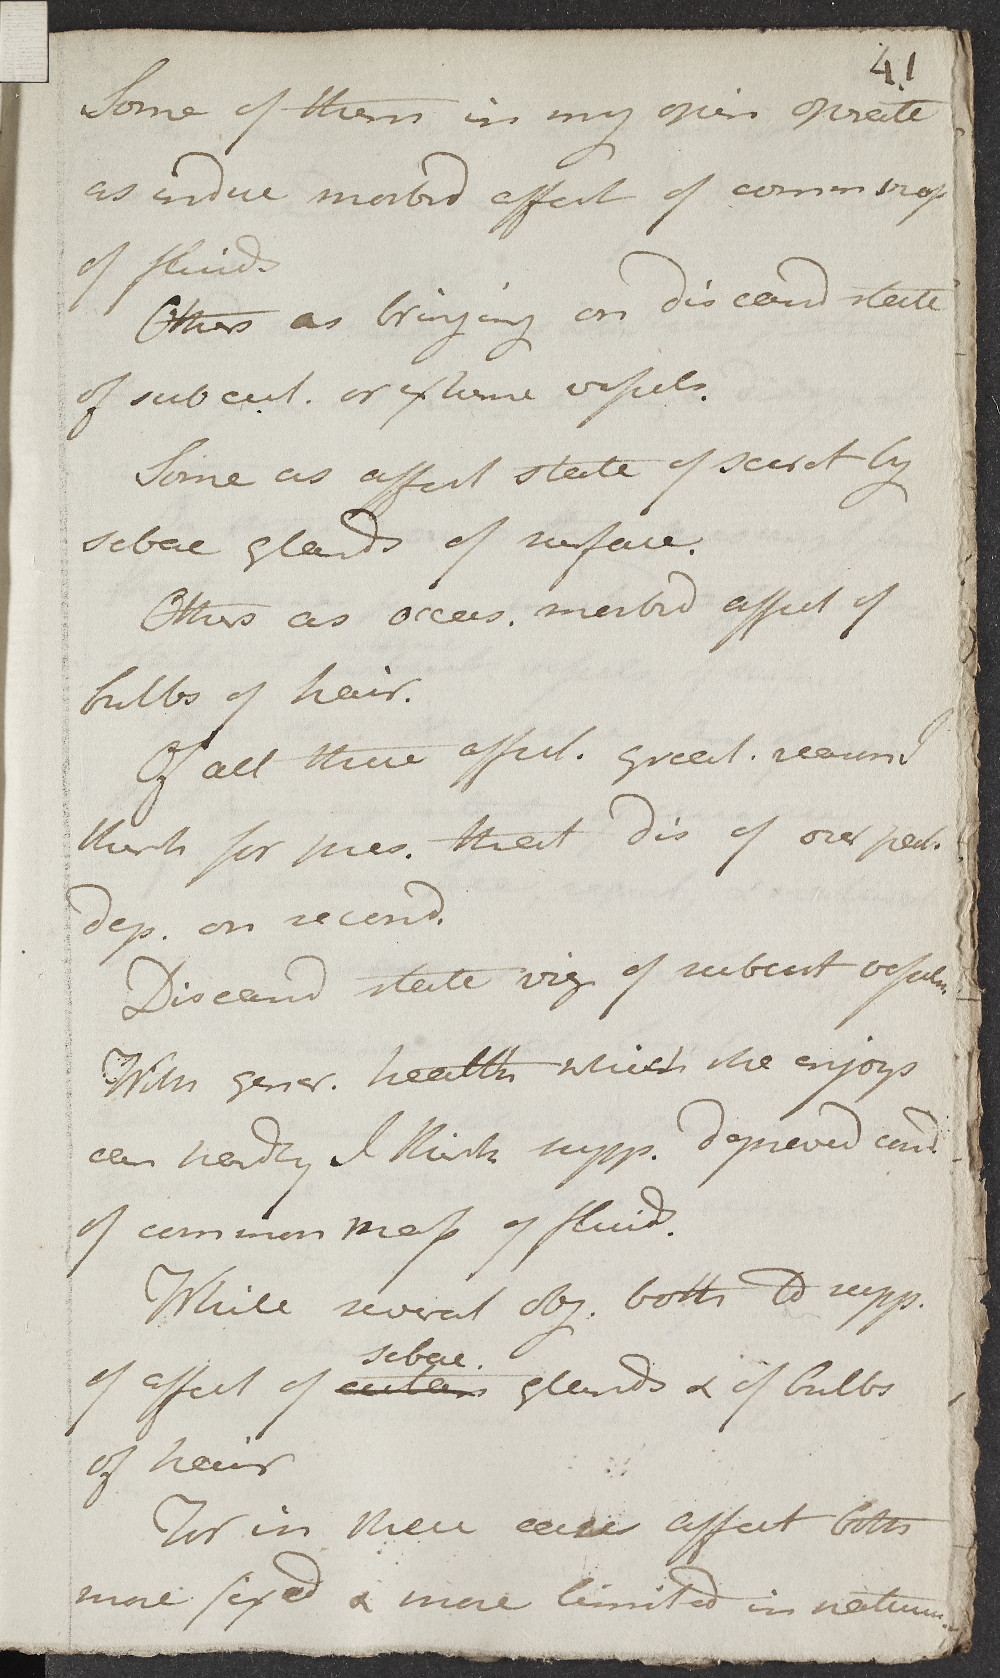 41
Some of them in my opin operate
as indue morbid affect of common mass
of fluids
Others as bringing on diseased state
of subcut. or extreme vessels.
Some as affect state of secret by
sebac glands of surface.
Others as occas. morbid affect of
bulbs of hair.
Of all these affect. great. reason I
think for pres. that dis of our pat.
dep. on second.
Diseased state viz of subcut vessels.
With gener. health which she enjoys
can hardly I think supp. depraved cond.
of common mass of fluids.
While several obj. both to supp.
sebac.
of affect of glands & of bulbs
of hair
For in these cases affect both
more fixed & more limited in nature.